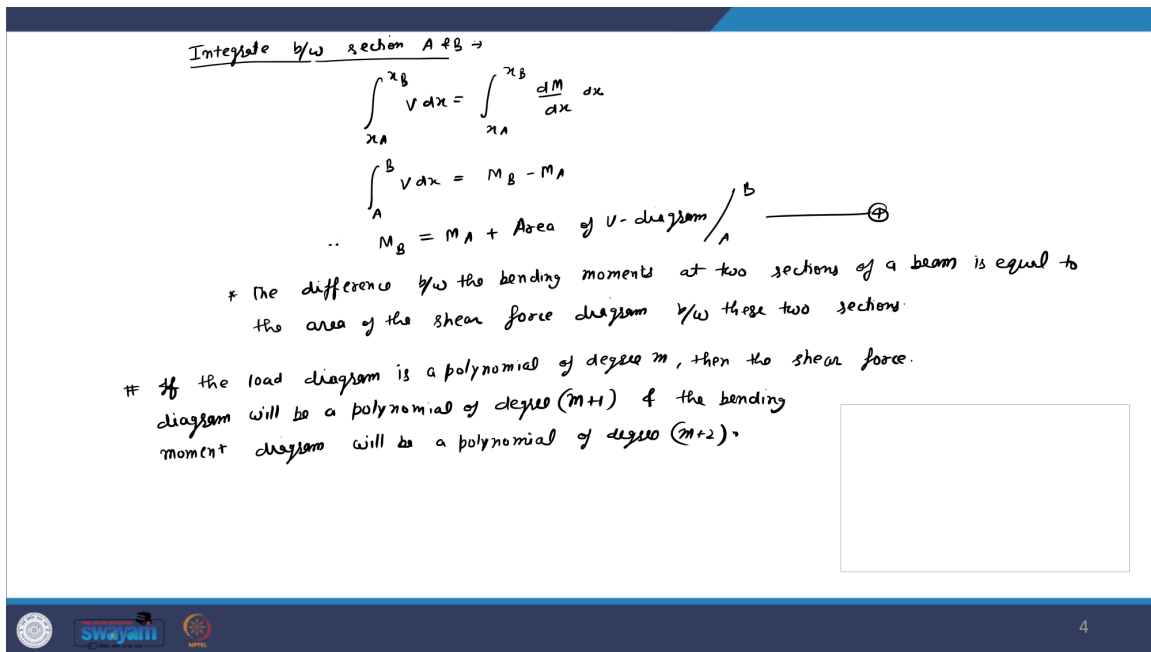 Integrate b/w section A & B →
∫_{xA}^{xB} V dx = ∫_{xA}^{xB} dM/dx dx
∫_A^B V dx = M_B - M_A
∴ M_B = M_A + Area of V-diagram /_A^B ——— ④
* The difference b/w the bending moments at two sections of a beam is equal to
the area of the shear force diagram b/w these two sections.
# If the load diagram is a polynomial of degree m, then the shear force.
diagram will be a polynomial of degree (m+1) & the bending
moment diagram will be a polynomial of degree (m+2).
swayam
NPTEL
4